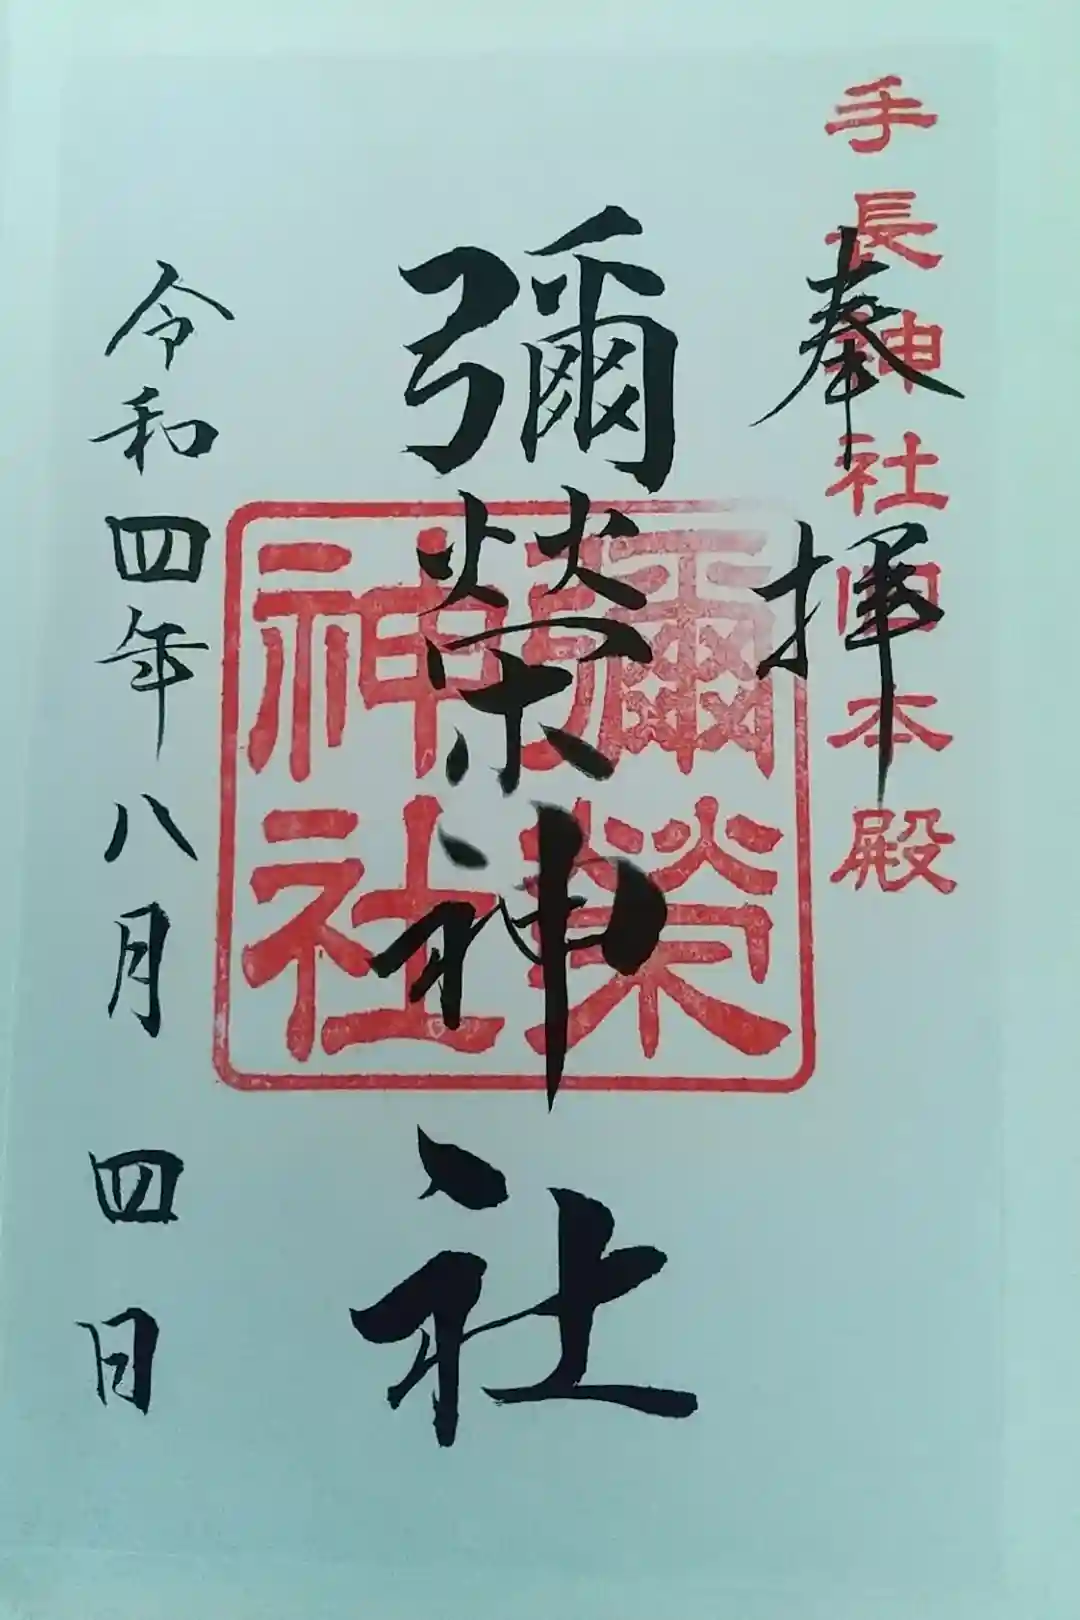 手長神社旧本殿
奉拝
彌榮神社
彌榮
神社
令和四年八月四日